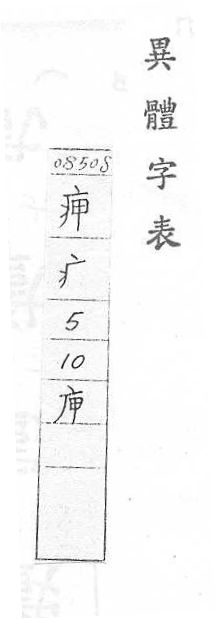 異體字表
08508
疒
5
10